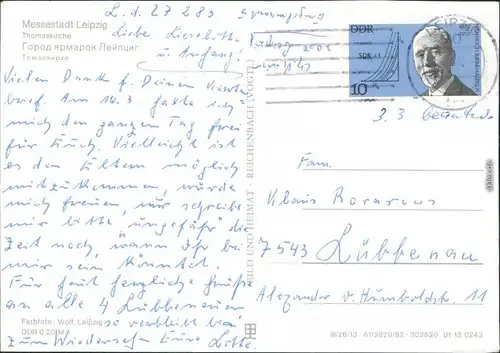 L. d. 27 2 83
Messestadt Leipzig
Thomaskirche
Город ярмарок Лейпциг
Томаскирхе
Liebe Lieselotte
u. Anhang!
Vielen Dank für Deinen
brief. Am 10.3 halte ich
mich den ganzen Tag frei
für Euch. Vielleicht ist
es den Eltern möglich
mitzukommen, würde
mich freuen, nur schreibe
mir bitte ungefähr die
Zeit noch, wann Ihr bei
mir sein könntet.
Für heut herzliche Grüße
an alle 4 Lübbenauer
so verbleibt bis
zum Wiedersehn Eure Lotte.
Farbfoto: Wolf, Leipzig
DDR 0,20 M
BILD UND HEIMAT · REICHENBACH (VOGTL)
DDR
10
LEIPZIG
3. 3
Fam.
Klaus
7543 Lübbenau
Alexander v. Humboldtstr. 11
III/26/13 A1/2820/82 302820 01 13 0243